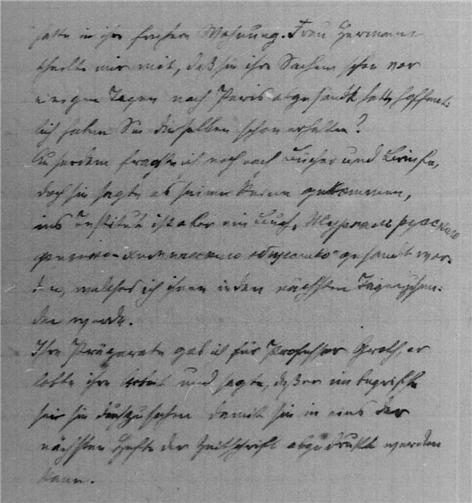 hatte in ihre frühere Wohnung. Frau Hermann
theilte mir mit, daß sie ihre Sachen schon vor
einigen Tagen nach Paris abgesandt hatte, hoffent-
lich haben Sie dieselben schon erhalten?
Außerdem fragte ich noch nach Bücher und Briefe,
doch sie sagte es seien keine gekommen,
ins Institut ist aber ein Buch, Журналъ русскаго
физико-химическаго общества gesandt wor-
den, welches ich ihnen in den nächsten Tagen
den werde.
Ihre Präparate gab ich für Professor Groth, er
lobte ihre Arbeit und sagte, daß er im begriffe
sei sie durchzusehen damit sie in eins der
nächsten Hefte der Zeitschrift abgedruckt werden
kann.